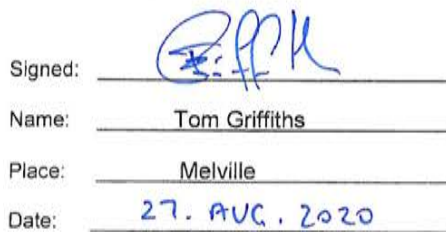 Signed:
Name: Tom Griffiths
Place: Melville
Date: 27. AUG. 2020